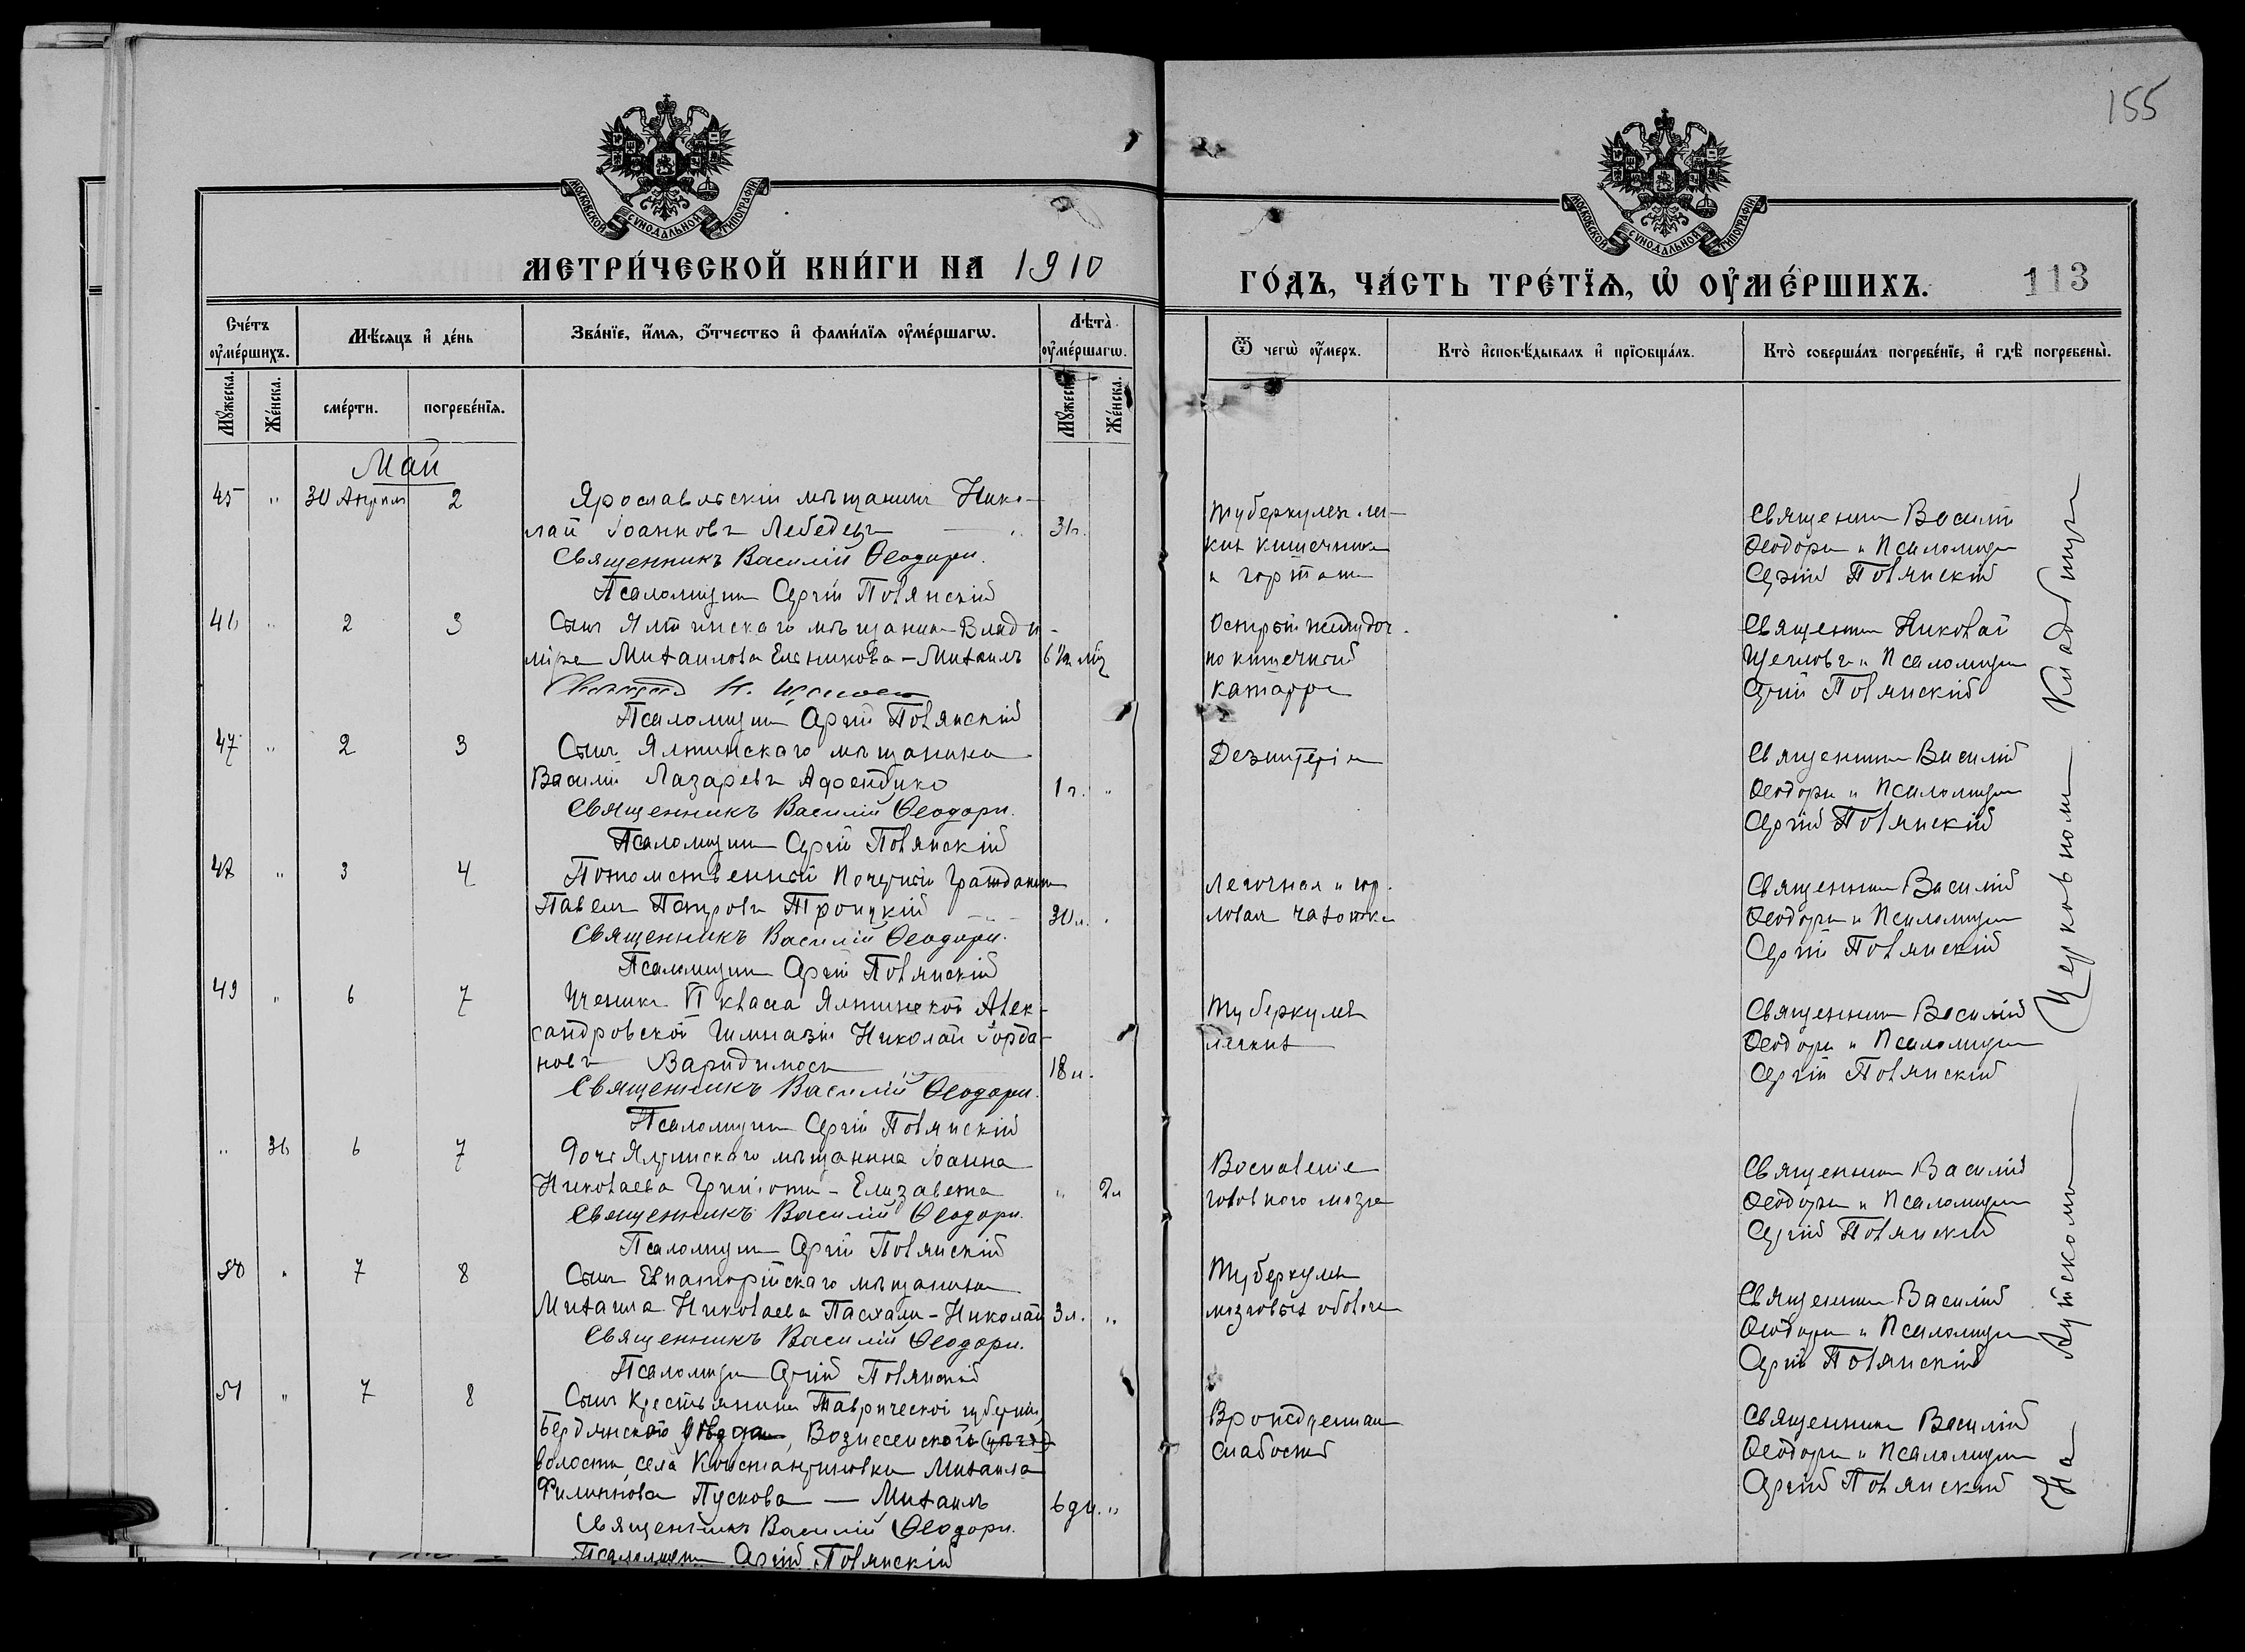 155
МОСКОВСКОЙ СѴНОДАЛЬНОЙ ТИПОГРАФІИ.
МОСКОВСКОЙ СѴНОДАЛЬНОЙ ТИПОГРАФІИ.
МЕТРИ́ЧЕСКОЙ КНИ́ГИ НА 1910
ГО́ДЪ, ЧА́СТЬ ТРЕ́ТЇѦ, Ѡ҆ ОУ҆МЕ́РШИХЪ. 113
Сче́тъ оу҆ме́ршихъ.
Мѣ́сяцъ и҆ де́нь
Зва́нїе, и҆́мѧ, ѻ҆́тчество и҆ фами́лїѧ оу҆ме́ршагѡ.
Лѣ́та оу҆ме́ршагѡ.
Ѿ чегѡ̀ оу҆́меръ.
Кто̀ и҆сповѣ́дывалъ и҆ прїѡбща́лъ.
Кто̀ соверша́лъ погребе́нїе, и҆ гдѣ̀ погребены̀.
Мꙋ́жеска.
Же́нска.
сме́рти.
погребе́нїѧ.
Мꙋ́жеска.
Же́нска.
Май
45 " 30 Апрѣля 2 Ярославскій мѣщанинъ Нико-
лай Іоанновъ Лебедевъ
Священникъ Василій Ѳеодори.
Псаломщикъ Сергій Полянскій
Туберкулез лег-
кихъ кишечника
и гортани
Священникъ Василій
Ѳеодори и Псаломщикъ
Сергій Полянскій
46 " 2 3 Сынъ Ялтинскаго мѣщанина Влади-
міра Михаилова Еленикова - Михаилъ 6½ мѣс
Псаломщикъ Сергій Полянскій
Острый желудоч.
но кишечный
катарръ
Священникъ Николай
Щегловъ и Псаломщикъ
Сергій Полянскій
47 " 2 3 Сынъ Ялтинскаго мѣщанина
Василій Лазаревъ Афендико 1 г. "
Священникъ Василій Ѳеодори.
Псаломщикъ Сергій Полянскій
Дезинтерія
Священникъ Василій
Ѳеодори и Псаломщикъ
Сергій Полянскій
48 " 3 4 Потомственный Почетный Гражданинъ
Павелъ Петровъ Троицкій 30 л. "
Священникъ Василій Ѳеодори.
Псаломщикъ Сергій Полянскій
Легочная и гор.
ловая чахотка
Священникъ Василій
Ѳеодори и Псаломщикъ
Сергій Полянскій
49 " 6 7 Ученикъ VI класса Ялтинской Алек-
сандровской Гимназіи Николай Іорда-
новъ Варидимосъ 18 л.
Священникъ Василій Ѳеодори.
Псаломщикъ Сергій Полянскій
Туберкулезъ
легкихъ
Священникъ Василій
Ѳеодори и Псаломщикъ
Сергій Полянскій
" 36 6 7 Дочь Ялтинскаго мѣщанина Іоанна
Николаева - Елизавета " 2 л
Священникъ Василій Ѳеодори.
Псаломщикъ Сергій Полянскій
Воспаленіе
головного мозга
Священникъ Василій
Ѳеодори и Псаломщикъ
Сергій Полянскій
50 " 7 8 Сынъ Евпаторійскаго мѣщанина
Михаила Николаева Пасхали - Николай 3 л. "
Священникъ Василій Ѳеодори.
Псаломщикъ Сергій Полянскій
Туберкулезъ
мозговыхъ оболочекъ
Священникъ Василій
Ѳеодори и Псаломщикъ
Сергій Полянскій
51 " 7 8 Сынъ Крестьянина Таврической губерніи,
Бердянскаго уѣзда, Вознесенской
волости, села Константиновки Михаила
Филиппова Пускова - Михаилъ 6 дн. "
Священникъ Василій Ѳеодори.
Псаломщикъ Сергій Полянскій
Врожденная
слабость
Священникъ Василій
Ѳеодори и Псаломщикъ
Сергій Полянскій
На Аутскомъ Церковномъ Кладбищѣ